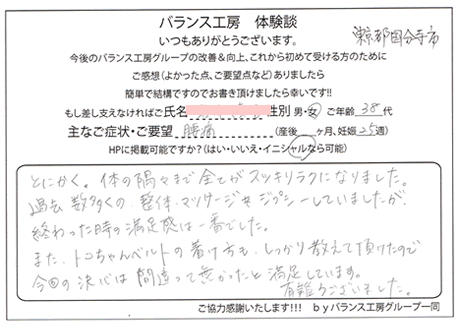 バランス工房 体験談
いつもありがとうございます。
東京都国分寺市
今後のバランス工房グループの改善&向上、これから初めて受ける方のために
ご感想(よかった点、ご要望点など)ありましたら
簡単で結構ですのでお書き頂けましたら幸いです!!
もし差し支えなければご氏名 性別 男・女 ご年齢 38 代
主なご症状・ご要望 腰痛 (産後 ヶ月、妊娠 25週)
HPに掲載可能ですか?(はい・いいえ・イニシャルなら可能)
とにかく。体の隅々まで全てがスッキリラクになりました。
過去 数多くの、整体・マッサージをジプシーしていましたが、
終わった時の満足感は一番でした。
また、トコちゃんベルトの着け方も、しっかり教えて頂けたので
今回の決心は間違って無かったと満足しています。
有難うございました。
ご協力感謝いたします!!! byバランス工房グループ一同